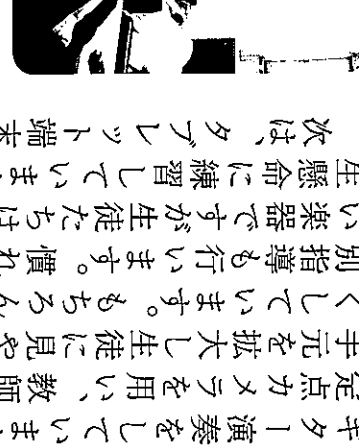 ギター演奏をしていま
定点カメラを用い、教師
手元を拡大し生徒に見や
くしています。もちろん
別指導も行います。慣れ
い楽器ですが生徒たちは
生懸命に練習していま
次は、タブレット端末